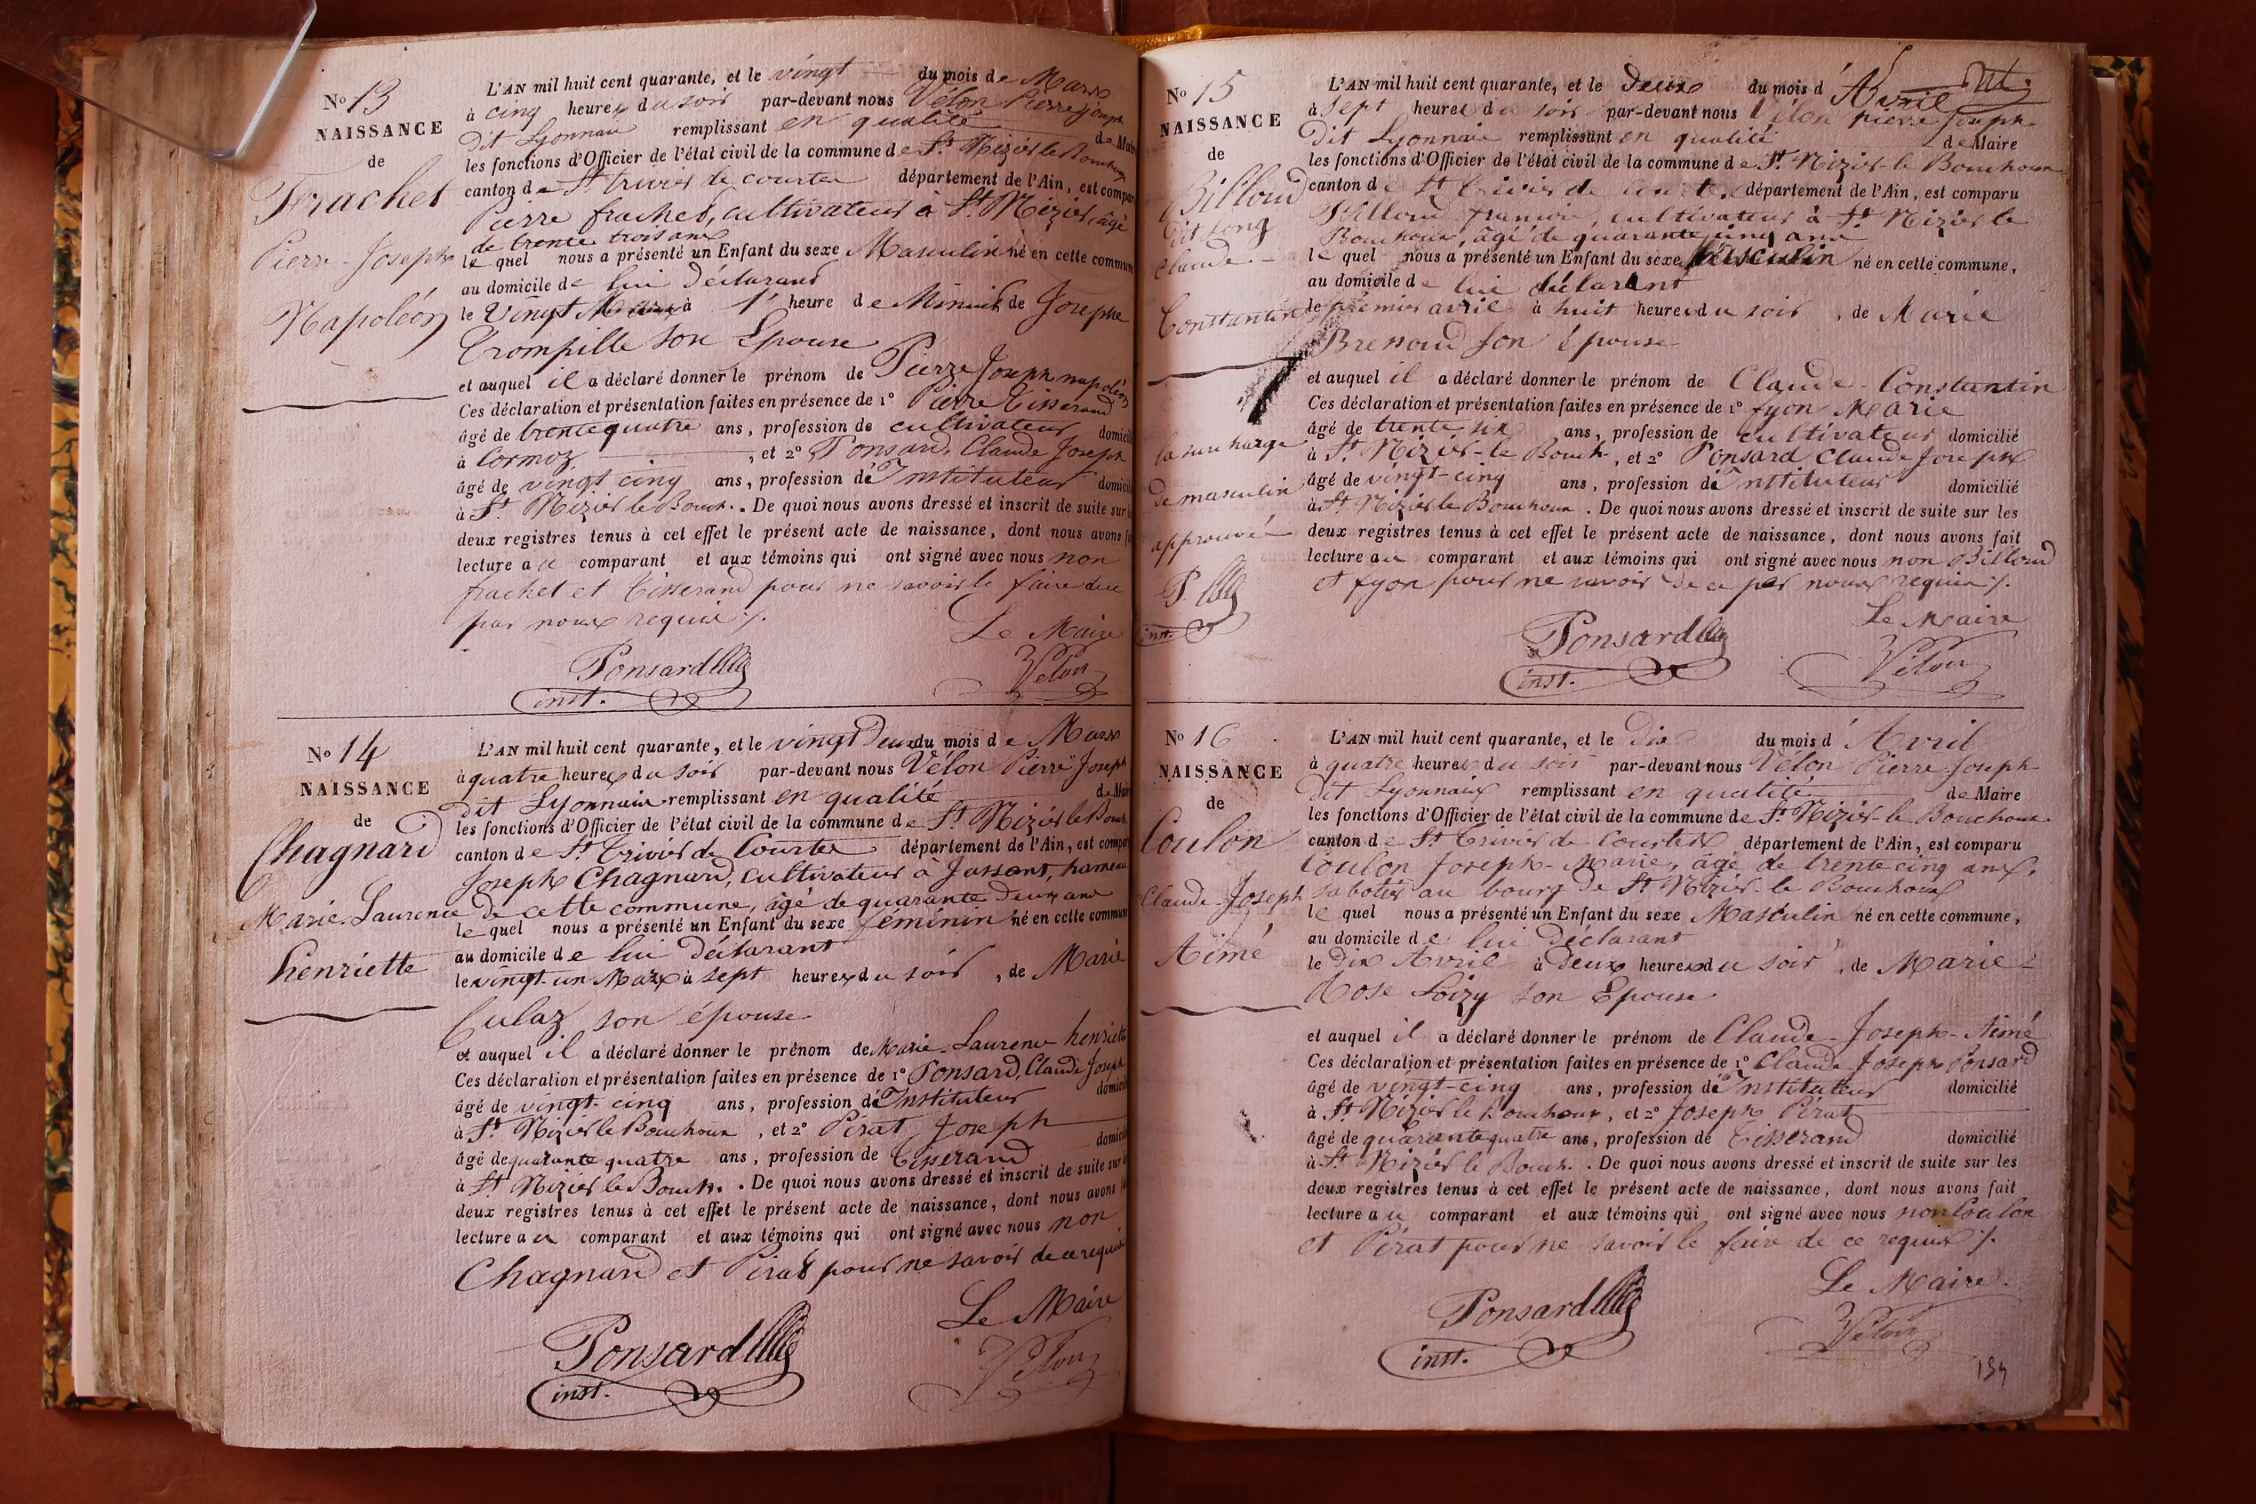 No 13
NAISSANCE
de
Frachet
Pierre-Joseph
Napoléon
L'AN mil huit cent quarante, et le vingt du mois de Mars
à cinq heures du soir par-devant nous Vélon Pierre Joseph
dit Lyonnais remplissant en qualité de Maire
les fonctions d'Officier de l'état civil de la commune de St Nizier le Bouchoux
canton de St trivier de courtes département de l'Ain, est comparu
Pierre frachet, cultivateur à St Nizier, âgé
de trente trois ans
le quel nous a présenté un Enfant du sexe Masculin né en cette commune
au domicile de lui Déclarant
le Vingt Mars à 1 heure de Minuit de Josephe
Trompille son Epouse
et auquel il a déclaré donner le prénom de Pierre Joseph napoléon
Ces déclaration et présentation faites en présence de 1° Pierre Tisserand
âgé de trente quatre ans, profession de cultivateur domicilié
à Cormoz, et 2° Ponsard, Claude Joseph
âgé de vingt cinq ans, profession d'Instituteur domicilié
à St Nizier le Bouch. . De quoi nous avons dressé et inscrit de suite sur les
deux registres tenus à cet effet le présent acte de naissance, dont nous avons fait
lecture au comparant et aux témoins qui ont signé avec nous non
frachet et Tisserand pour ne savoir le faire de ce
par nous requis ./.
Le Maire
Ponsard Vélon
inst.
No 14
NAISSANCE
de
Chagnard
Marie-Laurence
henriette
L'AN mil huit cent quarante, et le vingt Deux du mois de Mars
à quatre heures du soir par-devant nous Vélon Pierre Joseph
dit Lyonnais remplissant en qualité de Maire
les fonctions d'Officier de l'état civil de la commune de St Nizier le Bouch.
canton de St Trivier de Courtes département de l'Ain, est comparu
Joseph Chagnard, cultivateur à Jassans, hameau
de cette commune, âgé de quarante Deux ans
le quel nous a présenté un Enfant du sexe féminin né en cette commune
au domicile de lui Déclarant
le vingt-un Mars à sept heures du soir, de Marie
Culaz son épouse
et auquel il a déclaré donner le prénom de Marie-Laurence henriette
Ces déclaration et présentation faites en présence de 1° Ponsard, Claude Joseph
âgé de vingt-cinq ans, profession d'Instituteur domicilié
à St Nizier le Bouchoux, et 2° Pirat Joseph
âgé de quarante quatre ans, profession de Tisserand domicilié
à St Nizier le Bouch. . De quoi nous avons dressé et inscrit de suite sur les
deux registres tenus à cet effet le présent acte de naissance, dont nous avons fait
lecture au comparant et aux témoins qui ont signé avec nous non
Chagnard et Pirat pour ne savoir de ce requis
Le Maire
Ponsard Vélon
inst.
No 15
NAISSANCE
de
Billoud
dit long
Claude-
Constantin
la surcharge
de masculin
approuvée
inst.
L'AN mil huit cent quarante, et le Deux du mois d'Avril
à Sept heures du soir par-devant nous Vélon pierre Joseph
dit Lyonnais remplissant en qualité de Maire
les fonctions d'Officier de l'état civil de la commune de St Nizier le Bouchoux
canton de St Trivier de Courtes, département de l'Ain, est comparu
Billoud françois, cultivateur à St Nizier le
Bouchoux, âgé de quarante cinq ans
le quel nous a présenté un Enfant du sexe Masculin né en cette commune,
au domicile de lui déclarant
le premier avril à huit heures du soir, de Marie
Brenoud son épouse
et auquel il a déclaré donner le prénom de Claude-Constantin
Ces déclaration et présentation faites en présence de 1° fyon Marie
âgé de trente six ans, profession de cultivateur domicilié
à St Nizier-le Bouch., et 2° Ponsard Claude Joseph
âgé de vingt-cinq ans, profession d'Instituteur domicilié
à St Nizier le Bouchoux. De quoi nous avons dressé et inscrit de suite sur les
deux registres tenus à cet effet le présent acte de naissance, dont nous avons fait
lecture au comparant et aux témoins qui ont signé avec nous non Billoud
et fyon pour ne savoir de ce par nous requis ./.
Le Maire
Ponsard Vélon
inst.
No 16
NAISSANCE
de
Coulon
Claude-Joseph
Aimé
L'AN mil huit cent quarante, et le Dix du mois d'Avril
à quatre heures du soir par-devant nous Vélon Pierre-Joseph
dit Lyonnais remplissant en qualité de Maire
les fonctions d'Officier de l'état civil de la commune de St Nizier-le Bouchoux
canton de St Trivier de Courtes département de l'Ain, est comparu
Coulon Joseph-Marie, âgé de trente cinq ans,
sabotier au bourg de St Nizier-le Bouchoux
le quel nous a présenté un Enfant du sexe Masculin né en cette commune,
au domicile de lui Déclarant
le Dix Avril à Deux heures du soir, de Marie-
Rose Loizy son Epouse
et auquel il a déclaré donner le prénom de Claude-Joseph-Aimé
Ces déclaration et présentation faites en présence de 1° Claude Joseph Ponsard
âgé de vingt-cinq ans, profession d'Instituteur domicilié
à St Nizier le Bouchoux, et 2° Joseph Pirat
âgé de quarante quatre ans, profession de Tisserand domicilié
à St Nizier le Bouch. . De quoi nous avons dressé et inscrit de suite sur les
deux registres tenus à cet effet le présent acte de naissance, dont nous avons fait
lecture au comparant et aux témoins qui ont signé avec nous non Coulon
et Pirat pour ne savoir le faire de ce requis ./.
Le Maire.
Ponsard Vélon
inst.
154